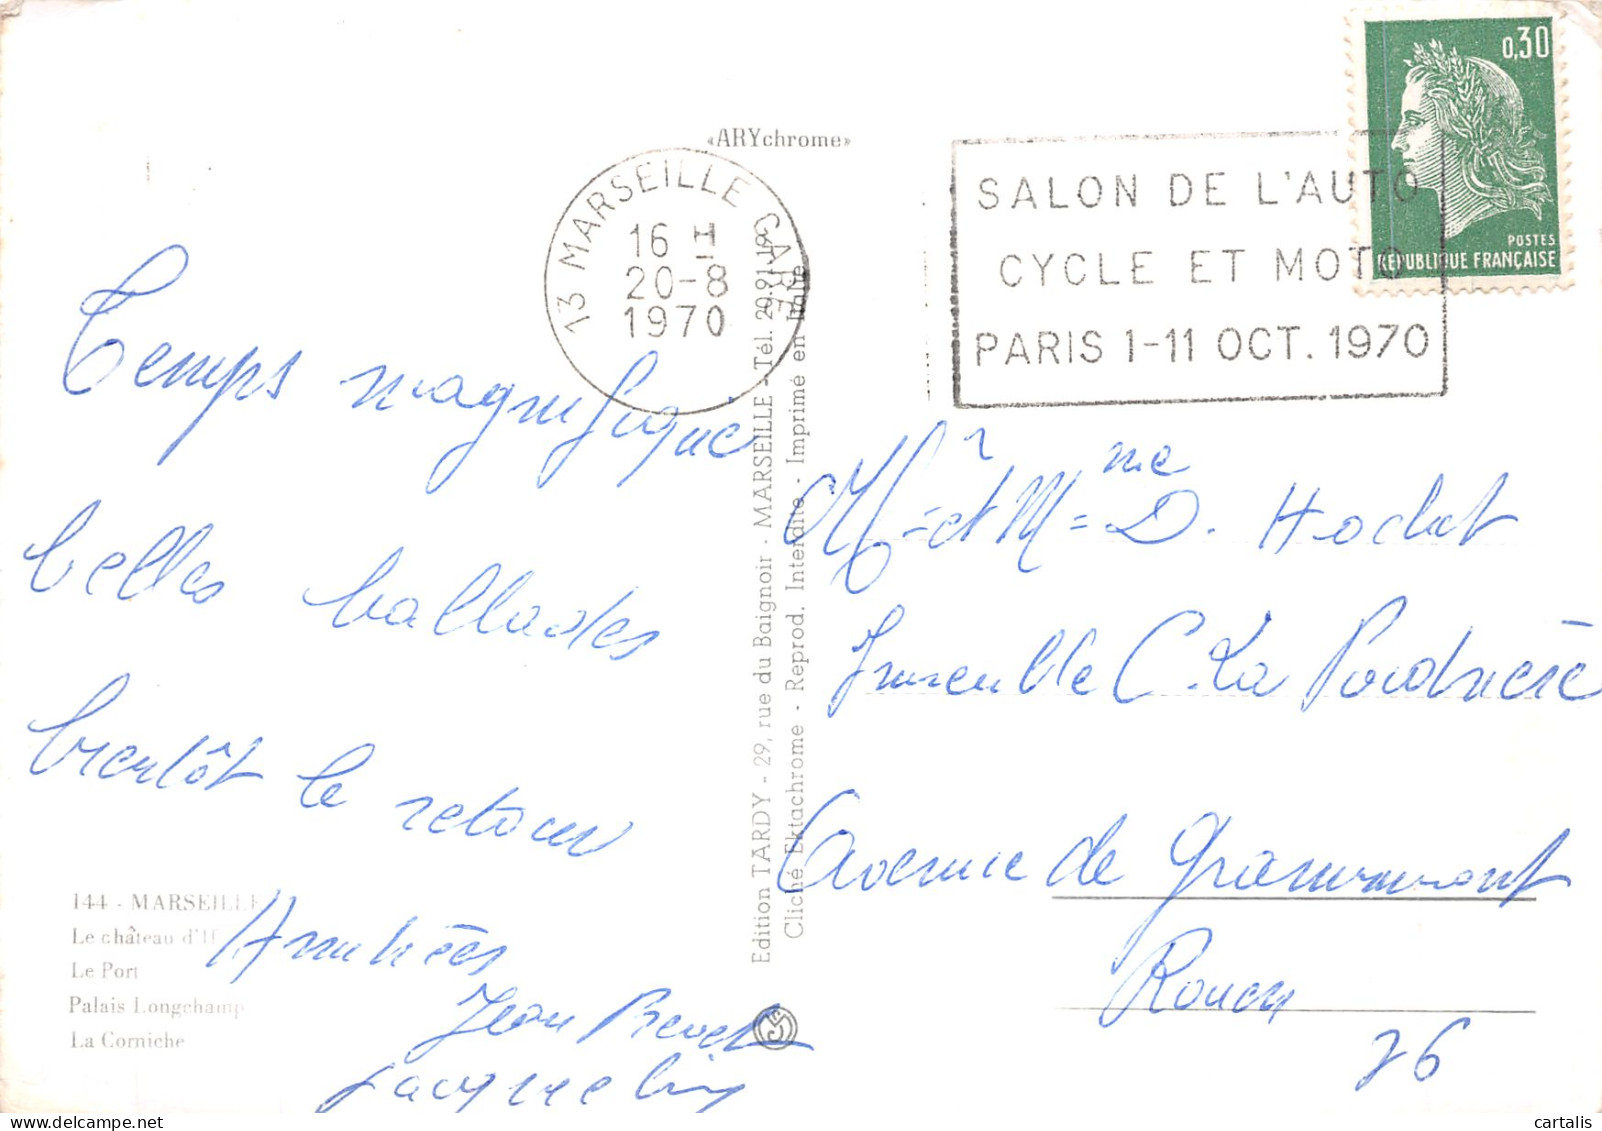 «ARYchrome»
0,30
POSTES
RÉPUBLIQUE FRANÇAISE
13 MARSEILLE GARE
16 H
20-8
1970
SALON DE L'AUTO
CYCLE ET MOTO
PARIS 1-11 OCT. 1970
Temps magnifique
belles ballades
bientôt le retour
Amitiés
Jean
Jacqueline
144 - MARSEILLE
Le château d'If
Le Port
Palais Longchamp
La Corniche
Edition TARDY - 29, rue du Baignoir - MARSEILLE - Tél. 20.91.19
Cliché Ektachrome - Reprod. Interdite - Imprimé en Italie
Mr et Mme D. Hochet
Immeuble C. La Poudrière
Avenue de Grammont
Rouen
76
cartalis
www.delcampe.net